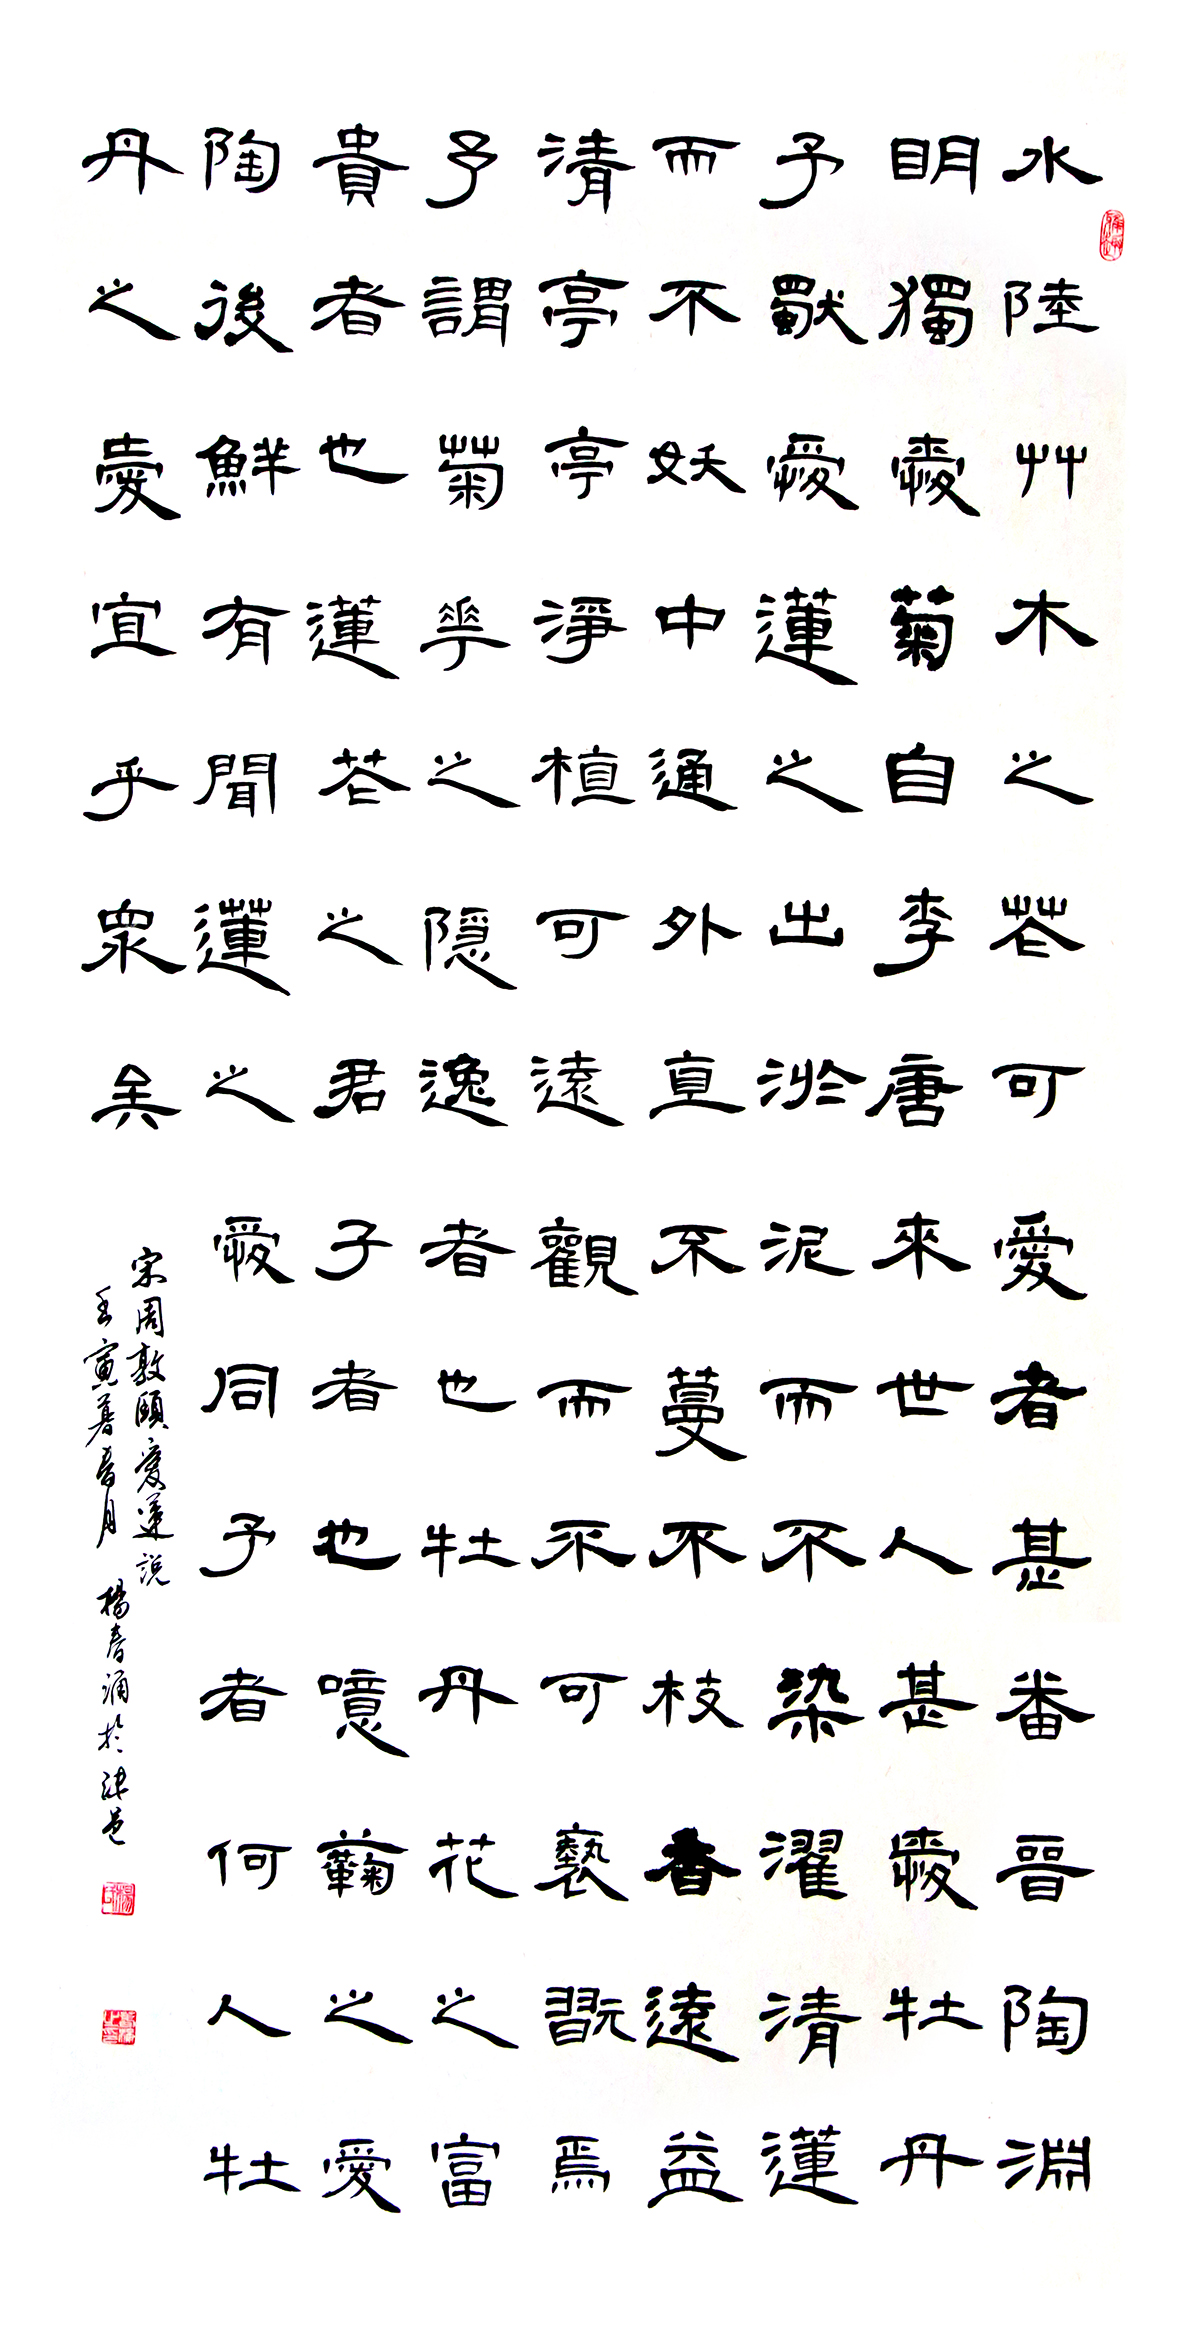 水陸艸木之花可愛者甚番晉陶淵
明獨愛菊自李唐來世人甚愛牡丹
予獨愛蓮之出淤泥而不染濯清蓮
而不妖中通外直不蔓不枝香遠益
清亭亭淨植可遠觀而不可褻翫焉
予謂菊華之隱逸者也牡丹花之富
貴者也蓮花之君子者也噫菊之愛
陶後鮮有聞蓮之愛同予者何人牡
丹之愛宜乎眾矣
宋周敦頤愛蓮說
壬寅暮春月 楊春涌於津邑